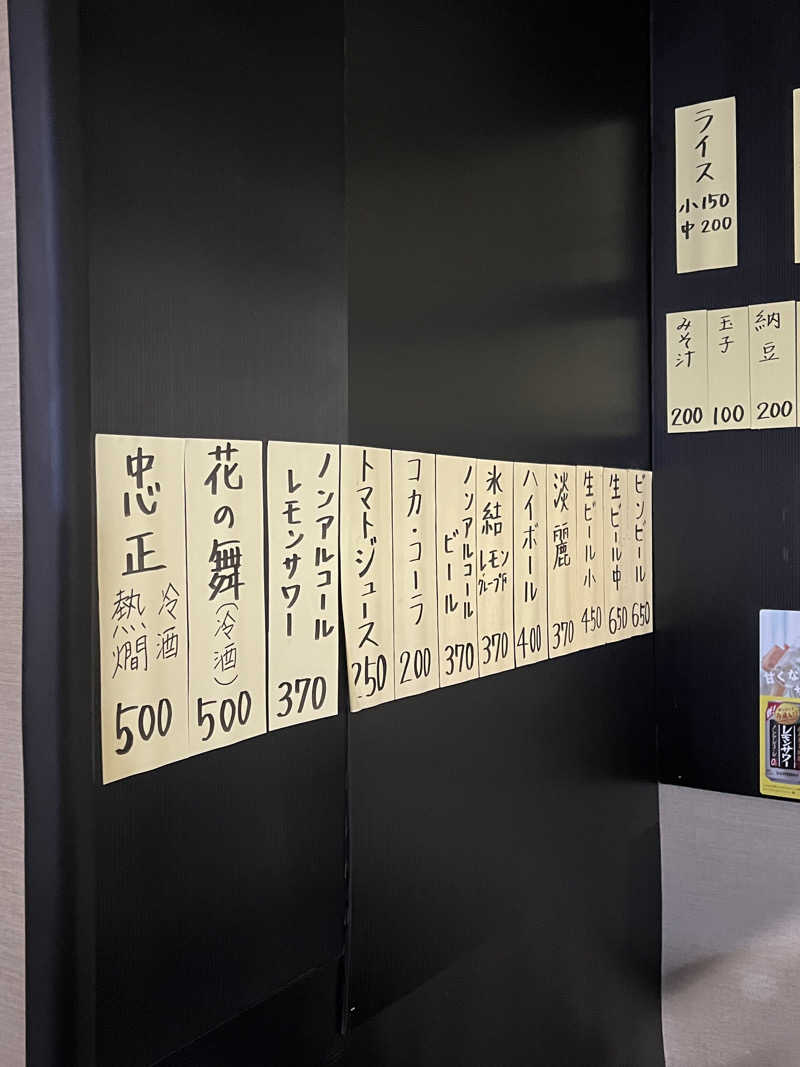 ライス
小 150
中 200
納豆
200
玉子
100
みそ汁
200
ビンビール
650
生ビール中
650
生ビール小
450
淡麗
370
ハイボール
400
氷結
レモン
グレープF
370
ノンアルコール
ビール
370
コカ・コーラ
200
トマトジュース
250
ノンアルコール
レモンサワー
370
花の舞
(冷酒)
500
忠正
冷酒
熱燗
500
甘くな
レモンサワー